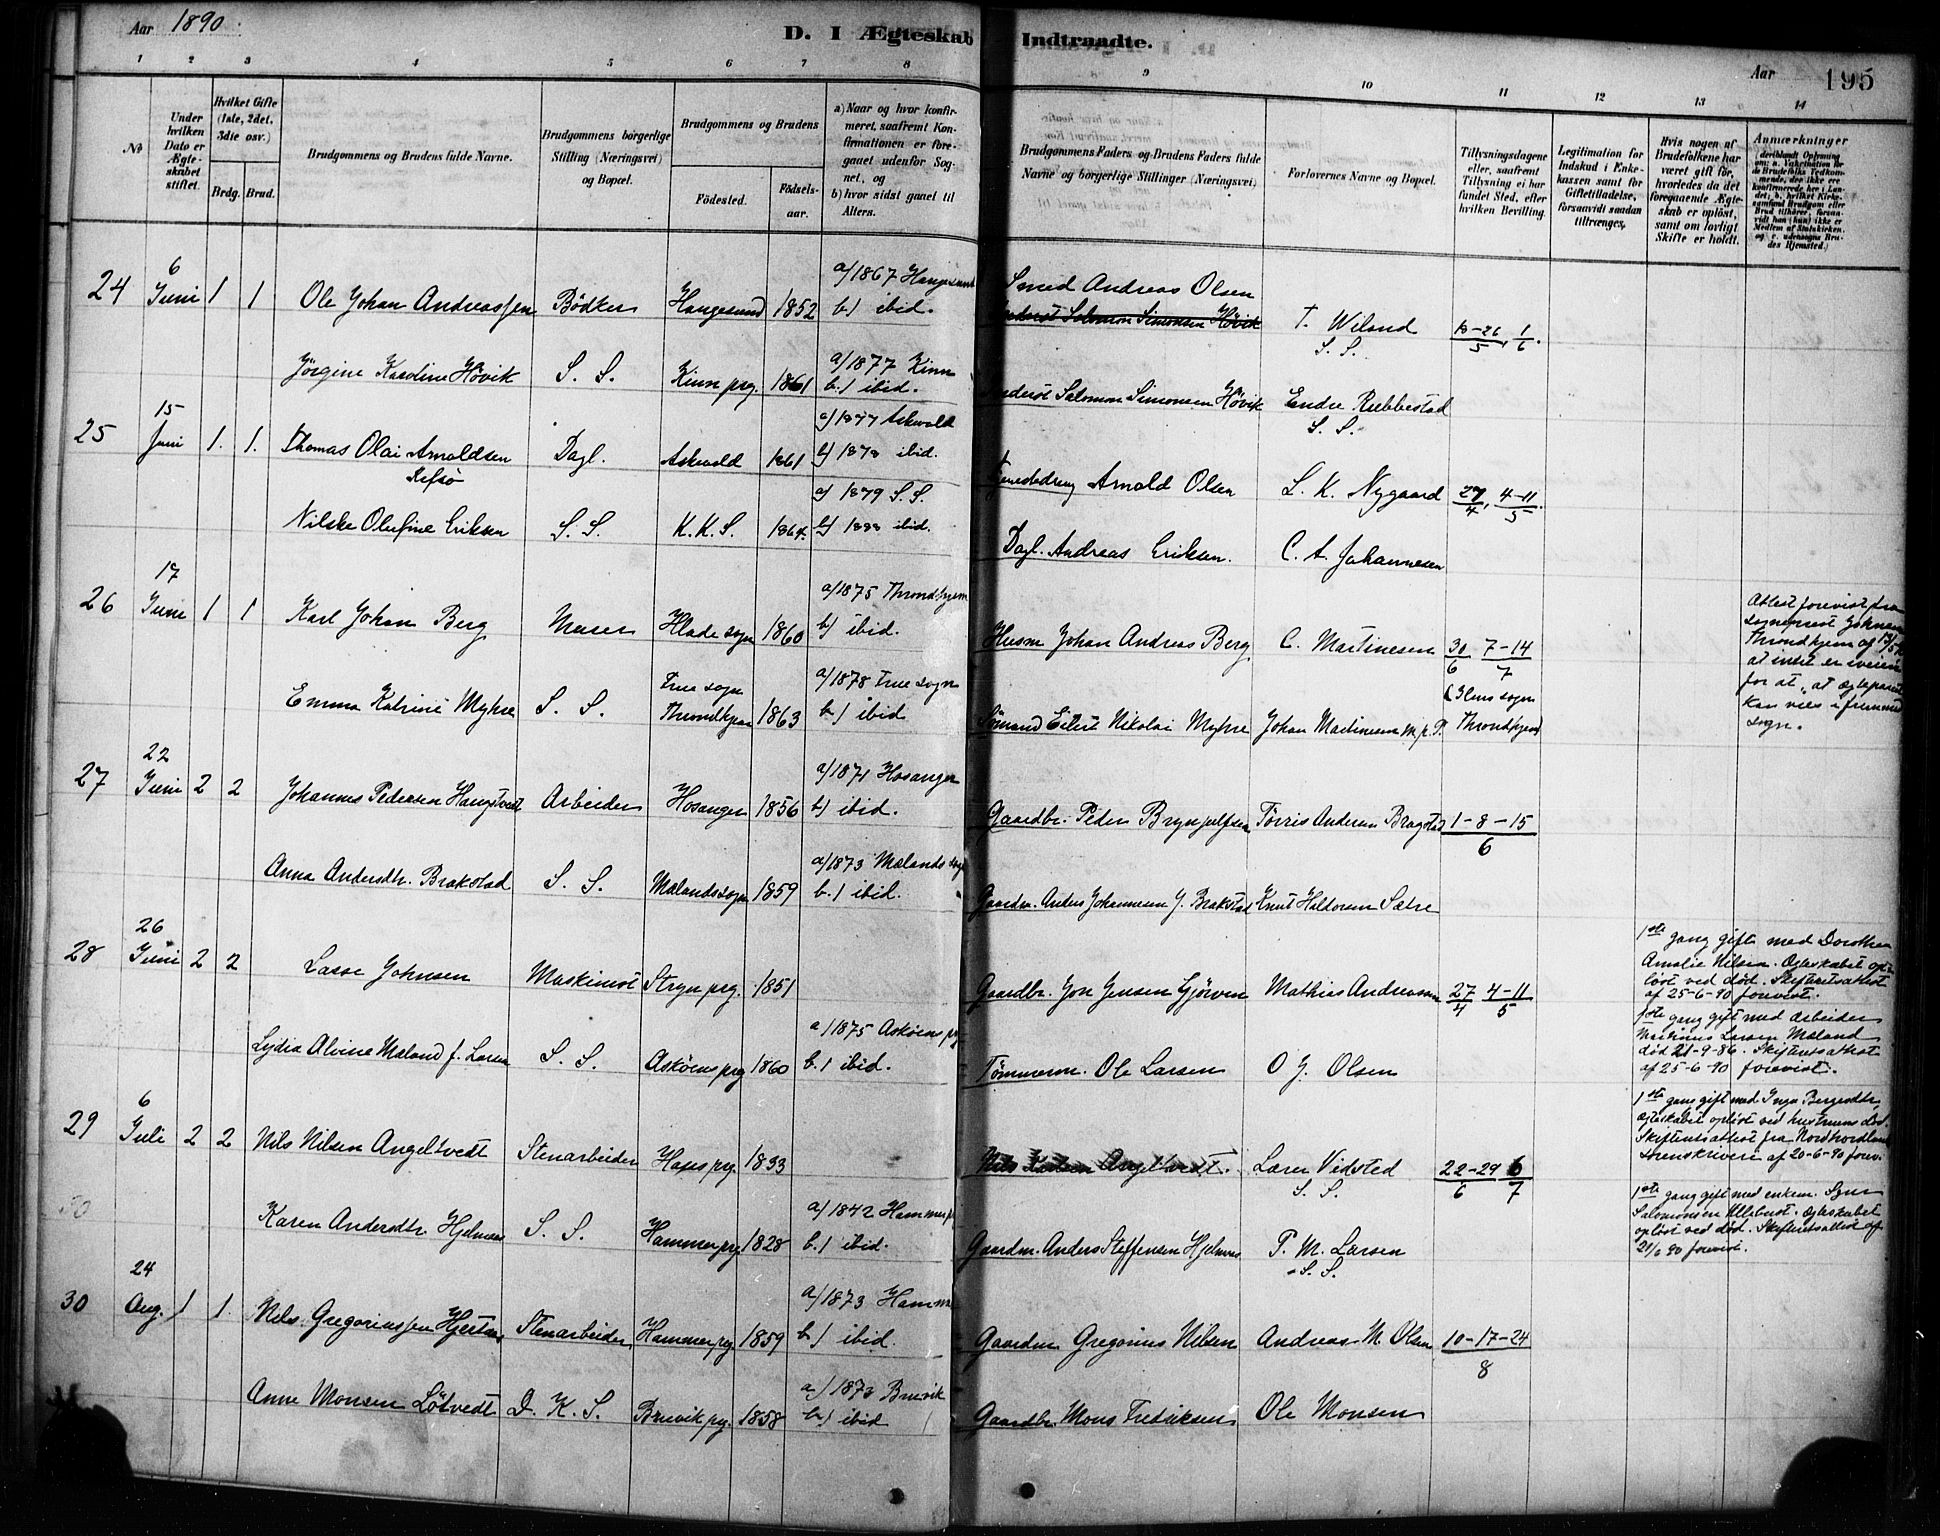 Aar 1890
D. I Ægteskab Indtraadte.
Aar
195
1 2 3 4 5 6 7 8 9 10 11 12 13 14
No
Under hvilken Dato er Ægteskabet stiftet.
Hvilket Gifte (1ste, 2det, 3die osv.)
Brdg. Brud.
Brudgommens og Brudens fulde Navne.
Brudgommens borgerlige Stilling (Næringsvei) og Bopæl.
Brudgommens og Brudens
Födested.
Födselsaar.
a) Naar og hvor konfirmeret, saafremt Konfirmationen er foregaaet udenfor Sognet, og
b) hvor sidst gaaet til Alters.
Brudgommens Faders og Brudens Faders fulde Navne og borgerlige Stillinger (Næringsvei)
Forlovernes Navne og Bopæl.
Tillysningsdagene eller, saafremt Tillysning ei har fundet Sted, efter hvilken Bevilling.
Legitimation for Indskud i Enkekassen samt for Giftetilladelse, forsaavidt saadan tiltrænges.
Hvis nogen af Brudefolkene har været gift för, hvorledes da det foregaaende Ægteskab er oplöst, samt om lovligt Skifte er holdt.
Anmærkninger
24 6 Juni 1 1 Ole Johan Andreassen Bödker Haugesund 1852 a/ 1867 Haugesund b/ ibid. Smed Andreas Olsen T. Wiland S. S. 18-26/5, 1/6.
Salomon Simonsen Hövik
Jörgine Karoline Hövik S. S. Kinn prg. 1861 a/ 1877 Kinn b./ ibid. Salomon Simonsen Hövik Endre Rebbestad S. S.
25 15 Juni 1. 1. Thomas Olai Arnoldsen Dagl. Askvold 1861 a/ 1877 Askvold b/ 1878 ibid. Arnold Olsen L. K. Nygaard 27/4, 4-11/5.
Nilske Olufine Eriksen S. S. K. K. S. 1864. a/ 1879 S. S. b/ 1888 ibid. Dagl. Andreas Eriksen. C. A. Johannesen
26 17 Juni 1 1 Karl Johan Berg Murer Hlade sogn 1860 a/ 1875 Throndhjem b/ ibid. Husm Johan Andreas Berg C. Martinesen 30/6 7-14/7
Emma Katrine Myhre S. S. Frue sogn Throndhjem 1863 a/ 1878 Frue sogn b./ ibid Sömand Eilert Nikolai Myhre Johan Martinesen m. p. P. Throndhjem
Attest forevist fra
sogneprest
Throndhjem af
at intet er iveien
for at
kan vies i fremmed
sogn.
27 22 Juni 2 2 Johannes Pedersen Haugstvedt Arbeider Hosanger 1856 a/ 1871 Hosanger b/ ibid. Gaardbr. Peder Brynjulfsen Törris Andersen Bragstad 1-8-15/6
Anna Andersdtr. Brakstad S. S. Mælandssogn 1859 a/ 1873 Mælands sogn b./ ibid. Gaardm. Anders Johannesen Y. Brakstad Knut Haldorsen Sætre
28 26 Juni 2 2 Lasse Johnsen Maskinist Stryn prg. 1851 Gaardbr. Jon Jensen Gjörven Mathias Andreassen 27/4 4-11/5
1ste gang gift med Dorothea
Amalie Nilsen. Ægteskabet op-
löst ved död. Skifteretsattest
af 25-6-90 forevist.
Lydia Alvine Mæland f. Larsen S. S. Asköens prg 1860 a/ 1875 Asköens prg b./ ibid. Tömmerm. Ole Larsen O J. Olsen
1ste gang gift med arbeider
Martinus Larsen Mæland
död 21-9-86. Skifteretsattest
af 25-6-90 forevist.
29 6 Juli 2 2 Nils Nilsen Angeltvedt Stenarbeider Haus prg. 1833 Nils Angeltvedt. Lars Vidsted S. S. 22-29/6 6/7
1ste gang gift med Inga Bergesdtr,
ægteskabet oplöst ved hustruens död.
Skifteretsattest fra Nordhordland
sorenskriveri af 20-6-90 forev.
30 Karen Andersdtr. Hjelmaas S. S. Hammer prg 1828 a/ 1842 Hammer pr b./ ibid. Gaardm. Anders Steffensen Hjelmaas P. M. Larsen S. S.
1ste gang gift med enkem.
Salomonsen. Ægteskabet
oplöst ved död. Skifteretsattest af
21/6 90 forevist.
30 24 Aug. 1 1. Nils Gregoriussen Hjertaas Stenarbeider Hammer prg 1859 a/ 1873 Hammer b/ ibid. Gaardm Gregorius Nilsen Andreas M. Olsen 10-17-24/8
Anne Monsen Lötvedt D. K. S. Bruvik prg. 1858 a/ 1873 Bruvik b/ ibid Gaardbr Mons Fredriksen Ole Monsen